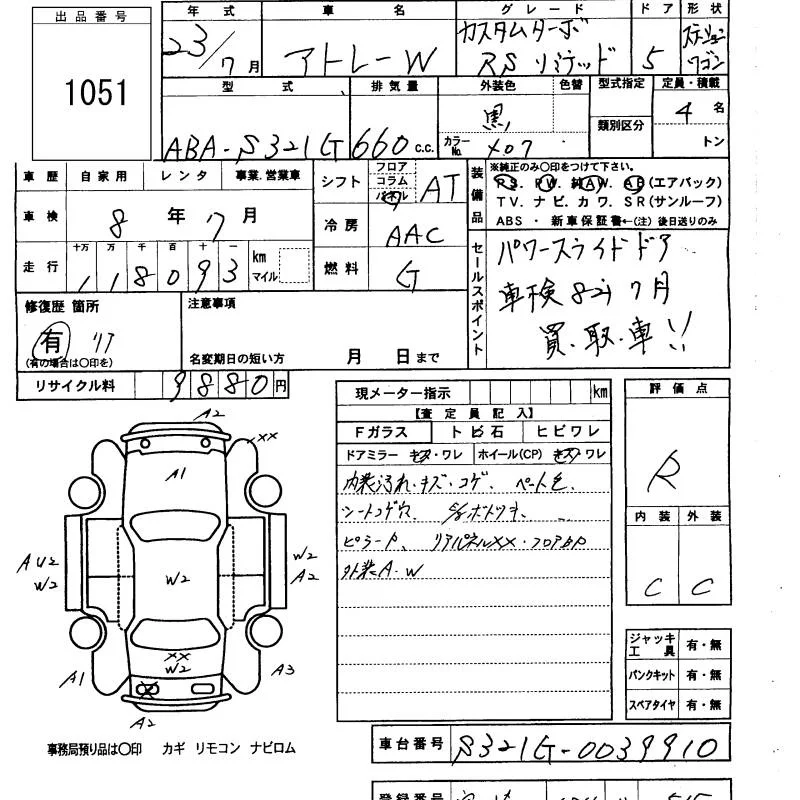 出品番号
1051
年式
23/7月
車名
アトレーW
グレード
カスタムターボ
RS リミテッド
ドア
5
形状
ステーション
ワゴン
型式
ABA-S321G
排気量
660 c.c.
外装色 色替
黒
カラーNo. X07
型式指定
類別区分
定員・積載
4名
トン
車歴 自家用 レンタ 事業・営業車
車検 8年7月
走行 十万 万 千 百 十 一
118093 km マイル
シフト フロア コラム パネル AT
冷房 AAC
燃料 G
装備品
※純正のみ〇印をつけて下さい。
PS. PW. 純AW. AB(エアバック)
TV. ナビ. カワ. SR(サンルーフ)
ABS ・ 新車保証書←(注)後日送りのみ
セールスポイント
パワースライドドア
車検8年7月
買・取・車!!
修復歴 箇所
有 リア
(有の場合は〇印を)
注意事項
名変期日の短い方 月 日まで
リサイクル料 9880円
現メーター指示 km
【査定員記入】
Fガラス トビ石 ヒビワレ
ドアミラー キズ・ワレ ホイール(CP) キズ・ワレ
内装汚れ・キズ・コゲ、
シートコゲ穴、
ピラーP、 リアパネルXX・フロアbP
外装A.W
評価点
R
内装 外装
C C
A2
XX
A1
AU2
W2
W2
W2
A2
XX
W2
A1
A3
A2
ジャッキ工具 有・無
パンクキット 有・無
スペアタイヤ 有・無
事務局預り品は〇印 カギ リモコン ナビロム
車台番号 S321G-0039910
登録番号